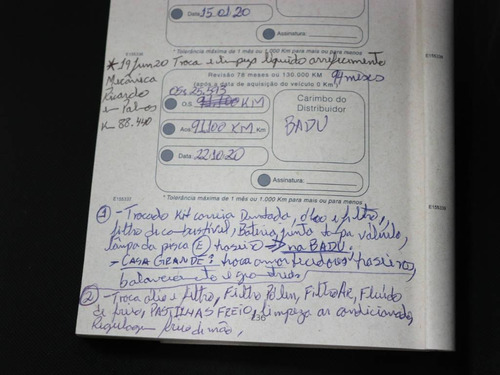 Data: 15.01.20
Assinatura:
* Tolerância máxima de 1 mês ou 1.000 Km para mais ou para menos
E155336
* 19 Jun 20 Troca e limpeza líquido arrefecimento
Mecânica
Ricardo
e
K 88.440
Revisão 78 meses ou 130.000 KM 94 meses
(após a data de aquisição do veículo 0 Km)
O.S.
KM
Aos 91.100 KM Km
Data: 22.10.20
Carimbo do
Distribuidor
BADU
Assinatura:
E155336
E155336
* Tolerância máxima de 1 mês ou 1.000 Km para mais ou para menos
1 - Trocado Kit correia Dentada, óleo e filtro,
filtro de combustível, Bateria, junta tampa válvula,
lâmpada pisca (E) traseiro → na BADU.
- CASA GRANDE: troca amortecedores traseiro,
balanceamento e
2 - Troca óleo e filtro, Filtro Pólen, Filtro Ar, Fluído
de freio, PASTILHAS FREIO, limpeza ar condicionado,
Regulagem freio de mão,
136